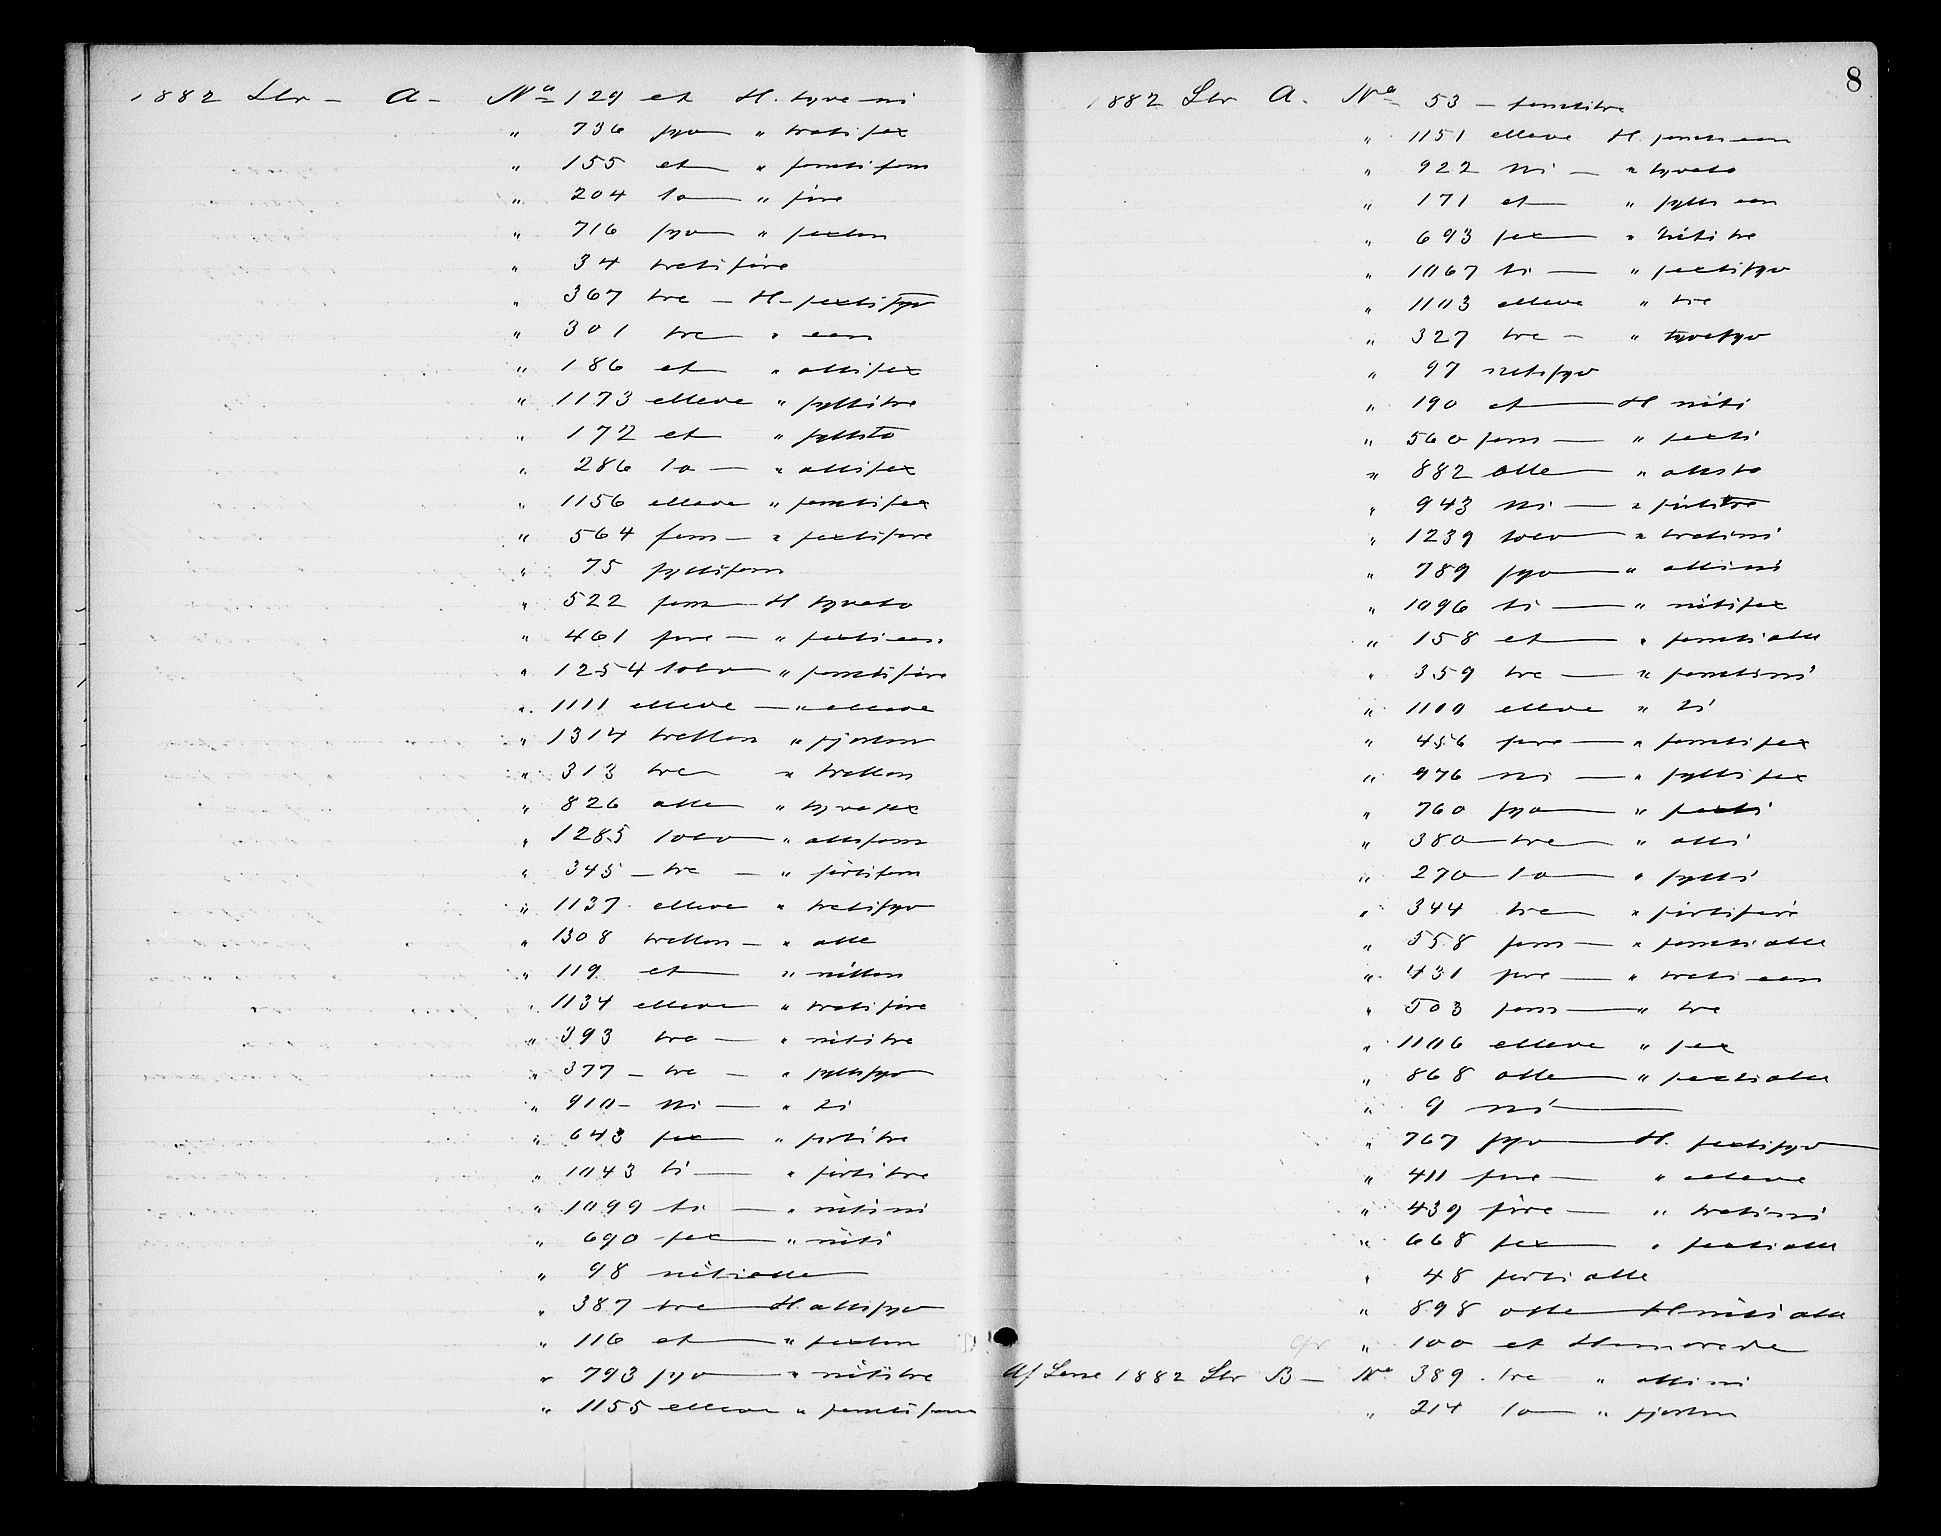 1882 Ltr - A - No 129 et H. tyve ni
" 736 syv " treti sex
" 155 et " femti fem
" 204 to " fire
" 716 syv " sexten
" 34 treti fire
" 367 tre - H - sexti syv
" 301 tre " een
" 186 et " otti sex
" 1173 elleve " sytti tre
" 172 et " sytti to
" 286 to - " otti sex
" 1156 elleve " femti sex
" 564 fem - " sexti fire
" 75 sytti fem
" 522 fem - H tyve to
" 461 fire - " sexti een
" 1254 tolv " femti fire
" 1111 elleve - " elleve
" 1314 tretten " fjorten
" 313 tre " tretten
" 826 otte " tyve sex
" 1285 tolv " otti fem
" 345 - tre - " førti fem
" 1137 elleve " treti syv
" 1308 tretten - " otte
" 119 et " nitten
" 1134 elleve " treti fire
" 393 tre - " niti tre
" 377 - tre - " sytti syv
" 910 - ni - " ti
" 643 sex " førti tre
" 1043 ti - " førti tre
" 1099 ti - " niti ni
" 690 - sex " niti
" 98 niti otte
" 387 tre H otti syv
" 116 et " sexten
" 793 syv " niti tre
" 1155 elleve " femti fem
8
1882 Ltr A. No 53 - femti tre
" 1151 elleve H. femti een
" 922 ni - " tyve to
" 171 et " sytti een
" 693 sex " niti tre
" 1067 ti - " sexti syv
" 1103 elleve " tre
" 327 tre - " tyve syv
" 97 niti syv
" 190 et H niti
" 560 fem - " sexti
" 882 otte " otti to
" 943 ni - " førti tre
" 1239 tolv " treti ni
" 789 syv " otti ni
" 1096 ti - " niti sex
" 158 et " femti otte
" 359 tre - " femti ni
" 1110 elleve " ti
" 456 fire - " femti sex
" 976 ni - " sytti sex
" 760 syv " sexti
" 380 tre " otti
" 270 to " sytti
" 344 tre " førti fire
" 558 fem - " femti otte
" 431 fire - " treti een
" 503 fem - " tre
" 1106 elleve " sex
" 868 otte " sexti otte
" 9 ni -
" 767 syv H. sexti syv
" 411 fire - " elleve
" 439 fire - " treti ni
" 668 sex " sexti otte
" 48 førti otte
" 898 otte H niti otte
" 100 et Hundrede
Af Serie 1882 Ltr B - No 389 . tre " otti ni
" 214 to " fjorten